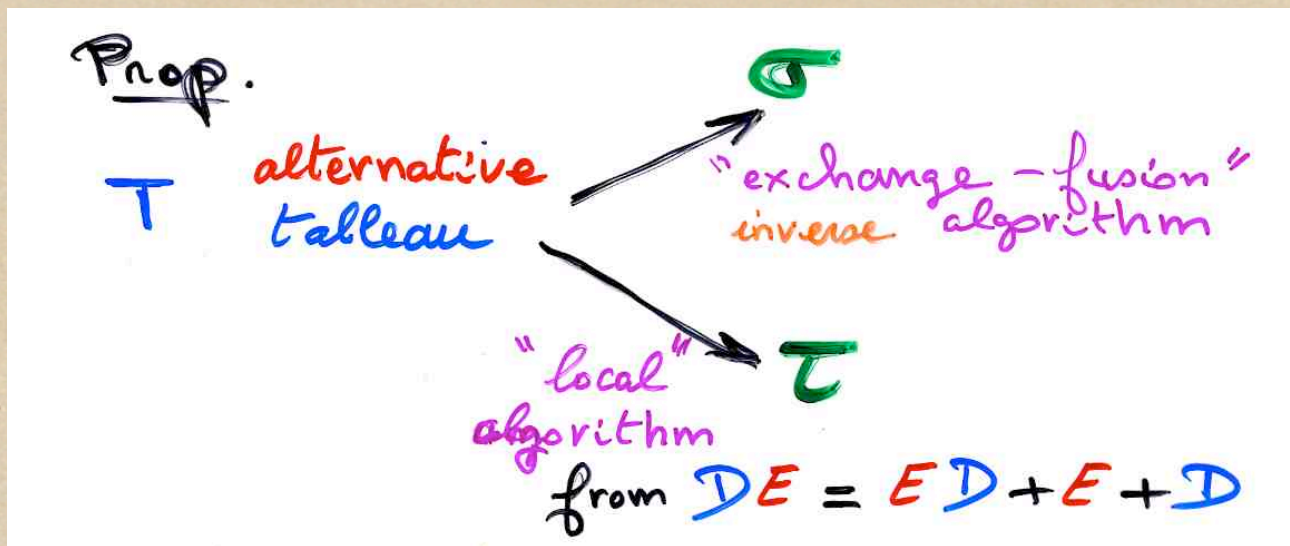 Prop.
σ
T alternative tableau
"exchange-fusion"
inverse algorithm
"local"
algorithm
τ
from DE = ED + E + D